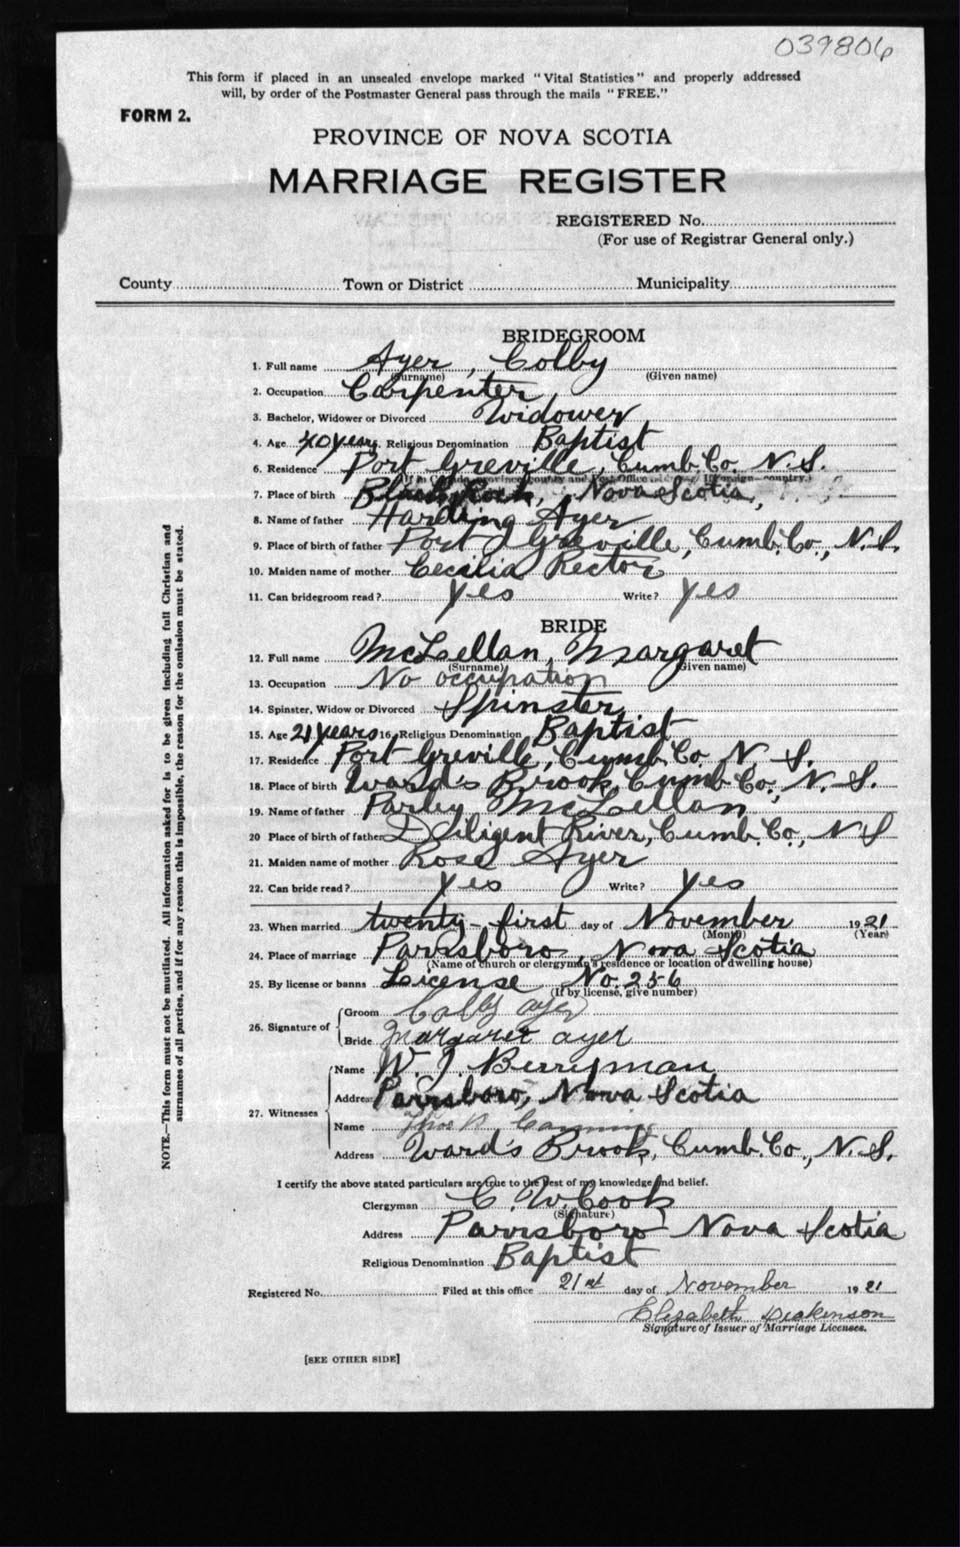 039806
This form if placed in an unsealed envelope marked "Vital Statistics" and properly addressed
will, by order of the Postmaster General pass through the mails "FREE."
FORM 2.
PROVINCE OF NOVA SCOTIA
MARRIAGE REGISTER
REGISTERED No.
(For use of Registrar General only.)
County Town or District Municipality
BRIDEGROOM
1. Full name Ayer, Colby
(Surname) (Given name)
2. Occupation Carpenter
3. Bachelor, Widower or Divorced Widower
4. Age 40 years. Religious Denomination Baptist
6. Residence Port Greville, Cumb. Co. N. S.
7. Place of birth Black Rock, Nova Scotia,
8. Name of father Harding Ayer
9. Place of birth of father Port Greville, Cumb. Co., N. S.
10. Maiden name of mother Cecilia Rector
11. Can bridegroom read? Yes Write? Yes
BRIDE
12. Full name McLellan, Margaret
(Surname) (Given name)
13. Occupation No occupation
14. Spinster, Widow or Divorced Spinster
15. Age 21 years 16. Religious Denomination Baptist
17. Residence Port Greville, Cumb. Co. N. S.
18. Place of birth Ward's Brook, Cumb. Co., N. S.
19. Name of father Parley McLellan
20 Place of birth of father Diligent River, Cumb. Co., N S
21. Maiden name of mother Rose Ayer
22. Can bride read? Yes Write? Yes
23. When married twenty-first day of November 1921
(Month) (Year)
24. Place of marriage Parrsboro, Nova Scotia
(Name of church or clergyman's residence or location of dwelling house)
25. By license or banns License No. 256
(If by license, give number)
26. Signature of Groom Colby Ayer
Bride Margaret Ayer
27. Witnesses Name W. J. Berryman
Address Parrsboro, Nova Scotia
Name Thos
Address Ward's Brook, Cumb. Co., N. S.
I certify the above stated particulars are true to the best of my knowledge and belief.
Clergyman C. W. Cook
(Signature)
Address Parrsboro Nova Scotia
Religious Denomination Baptist
Registered No. Filed at this office 21st day of November 1921
Elizabeth Dickinson
Signature of Issuer of Marriage Licenses.
[SEE OTHER SIDE]
NOTE.—This form must not be mutilated. All information asked for is to be given including full Christian and
surnames of all parties, and if for any reason this is impossible, the reason for the omission must be stated.